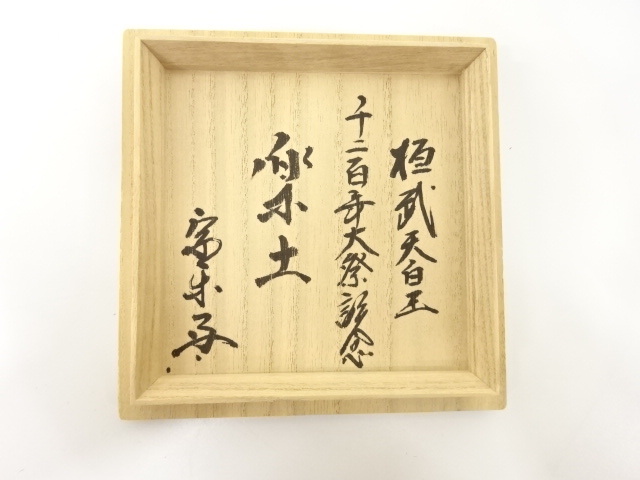 桓武天皇
千二百年大祭記念
楽土